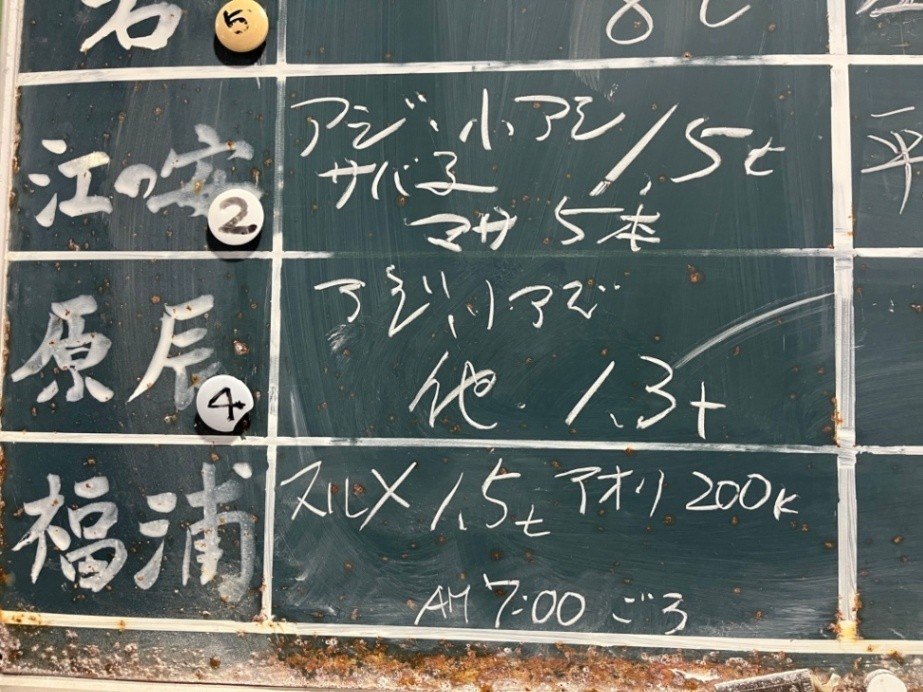 5
8t
江の安
2
アジ、小アジ 1.5t
サバ子
マサ 5本
原辰
4
アジ、小アジ
他. 1.3t
福浦
スルメ 1.5t アオリ 200k
AM 7:00 ごろ
平